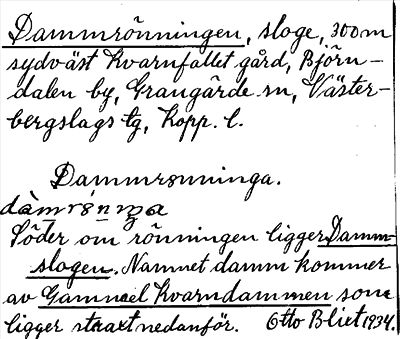 Dammrönningen, sloge, 300 m
sydväst Kvarnfallet gård, Björn-
dalen by, Grangärde sn, Väster-
bergslags tg, Kopp. l.
Dammrönninga.
Söder om rönningen ligger Damm-
slogen. Namnet damm kommer
av Gammel Kvarndammen som
ligger straxt nedanför. Otto Blixt 1934.